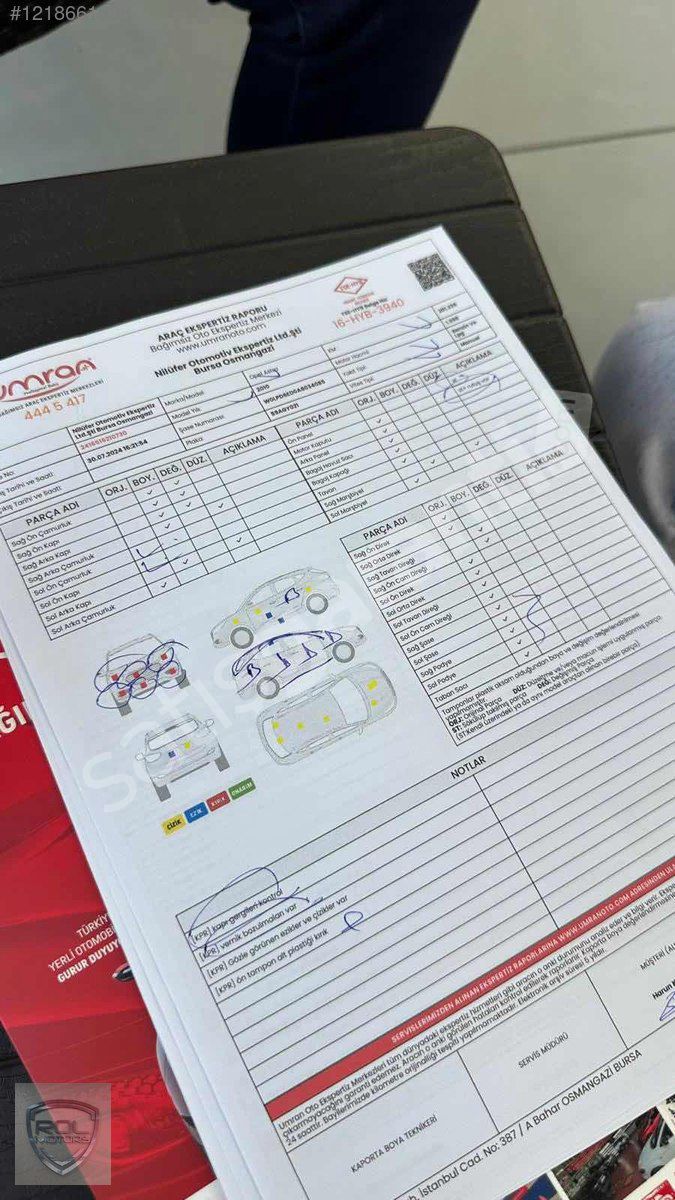 #1218661
ARAÇ EKSPERTİZ RAPORU
Bağımsız Oto Ekspertiz Merkezi
www.umranoto.com
TSE-HYB
TSE-HYB Belge No:
16-HYB-3940
umran
BAĞIMSIZ ARAÇ EKSPERTİZ MERKEZLERİ
444 5 417
Nilüfer Otomotiv Ekspertiz Ltd.Şti
Bursa Osmangazi
Nilüfer Otomotiv Ekspertiz
Ltd.Şti Bursa Osmangazi
30.07.2024 16:21:54
Marka/Model
Opel Astra
Model Yılı
2010
Şase Numarası
Plaka
KM
Motor Hacmi
Yakıt Tipi
Vites Tipi
Manuel
PARÇA ADI ORJ. BOY. DEĞ. DÜZ. AÇIKLAMA
Sağ Ön Çamurluk
Sağ Ön Kapı
Sağ Arka Kapı
Sağ Arka Çamurluk
Sol Ön Çamurluk
Sol Ön Kapı
Sol Arka Kapı
Sol Arka Çamurluk
PARÇA ADI ORJ. BOY. DEĞ. DÜZ. AÇIKLAMA
Ön Panel
Motor Kaputu
Arka Panel
Bagaj Havuz Sacı
Bagaj Kapağı
Tavan
Sağ Marşbiyel
Sol Marşbiyel
PARÇA ADI ORJ. BOY. DEĞ. DÜZ. AÇIKLAMA
Sağ Ön Direk
Sağ Orta Direk
Sağ Tavan Direği
Sağ Ön Cam Direği
Sol Ön Direk
Sol Orta Direk
Sol Tavan Direği
Sol Ön Cam Direği
Sağ Şase
Sol Şase
Sağ Podye
Sol Podye
Taban Sacı
Tamponlar plastik aksam olduğundan boya ve değişim değerlendirilmesi
yapılmamıştır.
ORJ: Orijinal Parça DÜZ: Düzeltme ve/veya macun işlemi uygulanmış parça
ST: Sökülüp takılmış parça DEĞ: Değişmiş Parça
(ST:Kendi üzerindeki ya da aynı model araçtan alınan birebir parça)
ÇİZİK EZİK KIRIK ONARIM
NOTLAR
[KPR] kapı gergileri kontrol
[KPR] vernik bozulmaları var
[KPR] Gözle görünen ezikler ve çizikler var
[KPR] ön tampon alt plastiği kırık
SERVİSLERİMİZDEN ALINAN EKSPERTİZ RAPORLARINA WWW.UMRANOTO.COM ADRESİNDEN ULA
KAPORTA BOYA TEKNİKERİ
SERVİS MÜDÜRÜ
MÜŞTERİ
Harun
İstanbul Cad. No: 387 / A Bahar OSMANGAZİ BURSA
TÜRKİY
YERLİ OTOMOBİ
GURUR DUYUYO
ROL
MOTORS